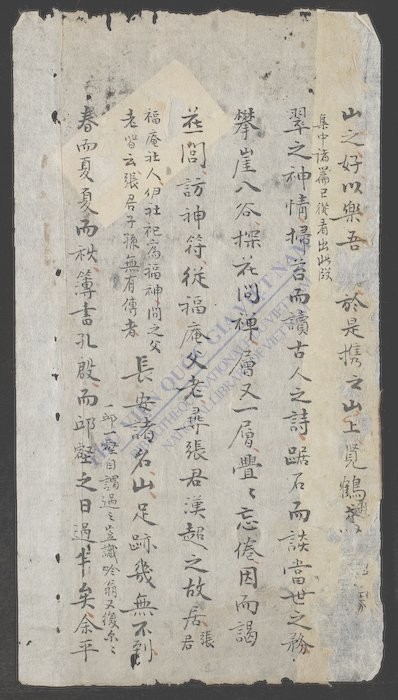 山之好以樂吾 於是携 山上覓鶴
集中諸篇已從看出此段
翠之神情掃苔而讀古人之詩踞石而談當世之務
攀崖入谷探花問禅層又一層亹〻忘倦因而謁
花閭訪神符從福庵父老尋張君漢超之故居
張君
福庵社人伊社祀為福神問之父
老皆云張君子孫無有傳者
長安諸名山足跡幾無不到
春而夏夏而秋簿書孔殷而邱壑之日過半矣余平
一邱一壑自謂過之豈識吟翁又復尔〻
THƯ VIỆN QUỐC GIA VIỆT NAM
NATIONAL LIBRARY OF VIETNAM